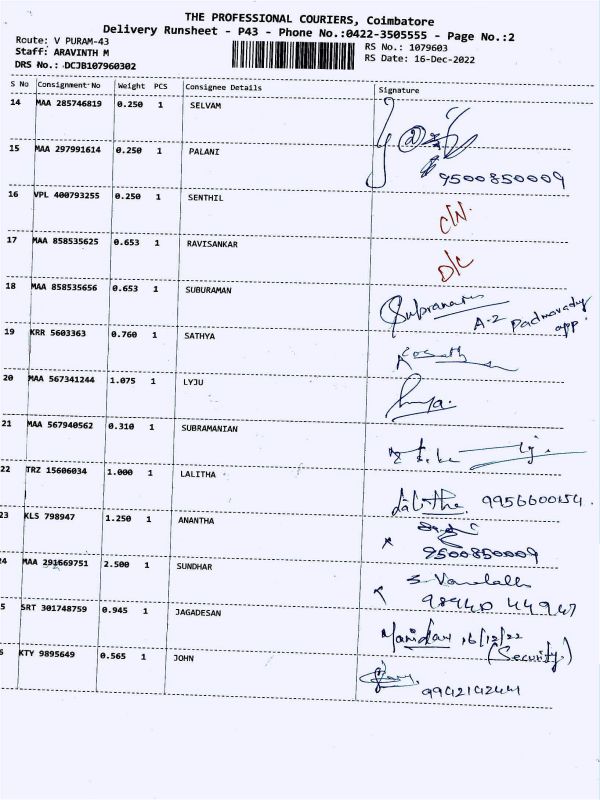 THE PROFESSIONAL COURIERS, Coimbatore
Delivery Runsheet - P43 - Phone No.:0422-3505555 - Page No.:2
Route: V PURAM-43
RS No.: 1079603
Staff: ARAVINTH M
RS Date: 16-Dec-2022
DRS No.: DCJB107960302
S No Consignment No Weight PCS Consignee Details Signature
14 MAA 285746819 0.250 1 SELVAM
15 MAA 297991614 0.250 1 PALANI
9500850009
16 VPL 400793255 0.250 1 SENTHIL C/N.
17 MAA 858535625 0.653 1 RAVISANKAR D/C
18 MAA 858535656 0.653 1 SUBURAMAN
A-2 Padmavady app.
19 KRR 5603363 0.760 1 SATHYA
20 MAA 567341244 1.075 1 LYJU
21 MAA 567940562 0.310 1 SUBRAMANIAN
22 TRZ 15606034 1.000 1 LALITHA
Lalitha 9956600154.
23 KLS 798947 1.250 1 ANANTHA
9500850009
24 MAA 291669751 2.500 1 SUNDHAR
98940 44947
5 SRT 301748759 0.945 1 JAGADESAN
16/12/22
(Security)
6 KTY 9895649 0.565 1 JOHN
9942142444